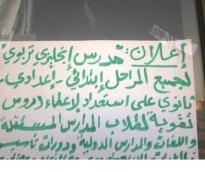 إعلان: "مدرس إنجليزي تربوي"
لجميع المراحل إبتدائي - إعدادي -
ثانوي على استعداد لإعطاء دروس
تقوية لطلاب المدارس المستقلة
واللغات والدارس الدولية ودورات تأسيس